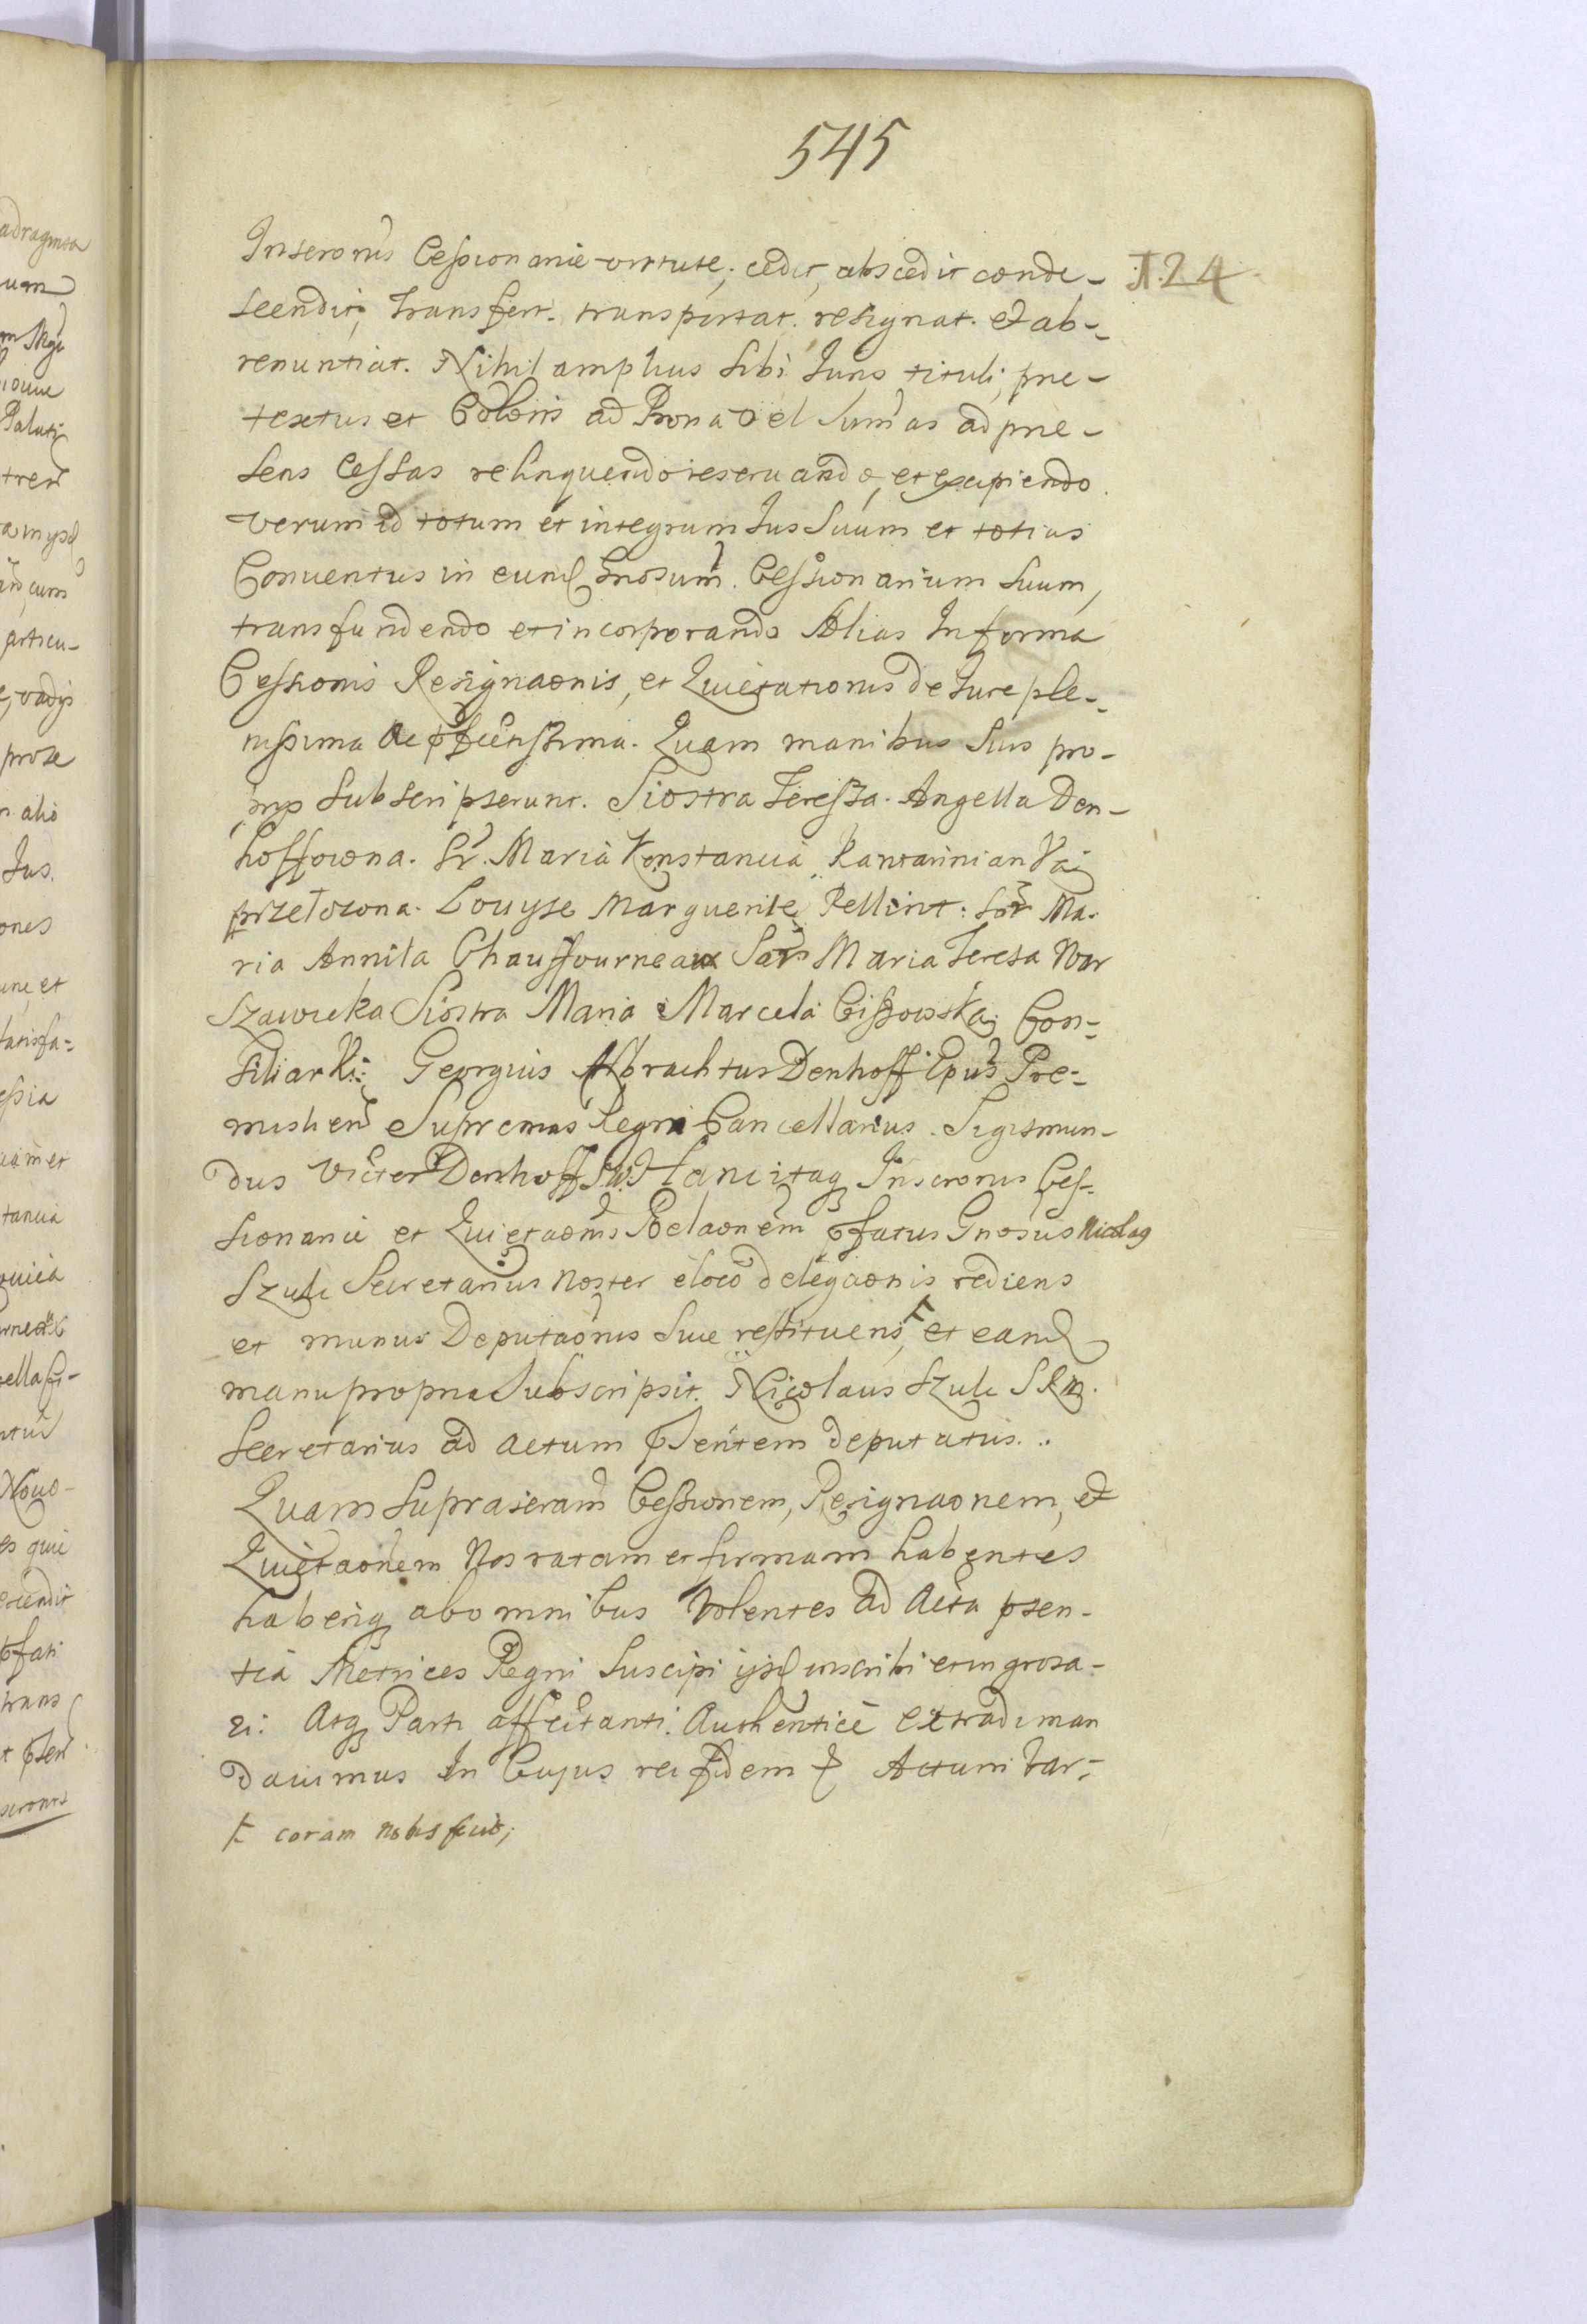 545
J.24
Inscronis Cessionariae virtute, cedit, abscedit conde-
scendit, transfert. transportat. resignat. et ab-
renuntiat. Nihil amplius sibi Juris tituli, prae-
textus et Coloris ad Bona vel Sumas ad prae-
sens Cessas relinquendo reservando, et excipiendo.
verum id totum et integrum Jus Suum et totius
Conventus in eund Gnosum. Cessionarium Suum,
transfundendo et incorporando Alias In forma
Cessionis Resignaonis, et Quietationis de Jure ple-
nissima ac pfectissima. Quam manibus Suis pro-
prijs Subscripserunt. Siostra Teressa. Angella Den-
hoffowna. Sr. Maria Konstancia
przełozona. Louyse Marguerite Pellint: Sor Ma-
ria Annita Chauffourneaux Sor Maria Teresa War
szawicka Siostra Maria Marcela Cissowska Con-
siliarki: Georgius Albrachtus Denhoff Epus Pre-
mislien Supremus Regni Cancellarius. Sigismun-
dus Victer Denhoff Hancitaq Inscronis Ces-
sionariae et Quietaonis Relaonem pfatus Gnosus Nicolaq
Szulc Secretarius Noster e loco delegaonis rediens
et munus Deputaonis Suae restituens, et eand
manu propria Subscripsit. Nicolaus Szulc S R M.
Secretarius ad actum psentem deputatus.
Quam Supraseram Cessionem, Resignaonem, et
Quietaonem Nos ratam et firmam habentes
haberiq ab omnibus Volentes ad Acta psen-
tia Metrices Regni Suscipi ijsd inscribi et ingrosa-
ri: Atq Parti affectanti Authentice extradi man
davimus In Cujus rei fidem Actum Var-
coram nobis fecit;